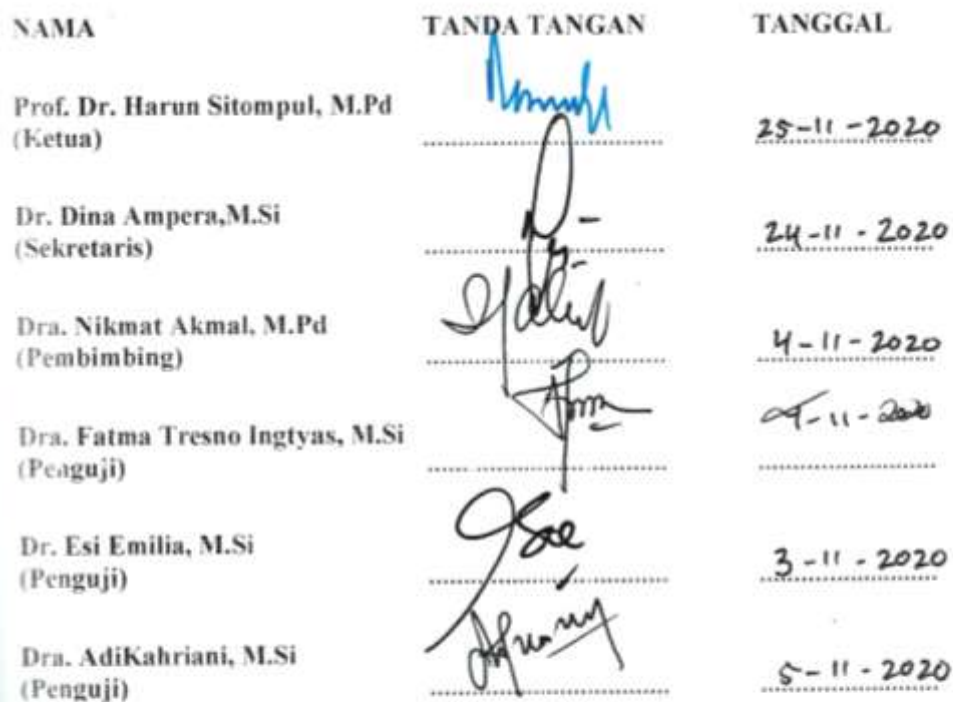 NAMA TANDA TANGAN TANGGAL
Prof. Dr. Harun Sitompul, M.Pd
(Ketua) 25-11-2020
Dr. Dina Ampera,M.Si
(Sekretaris) 24-11-2020
Dra. Nikmat Akmal, M.Pd
(Pembimbing) 4-11-2020
Dra. Fatma Tresno Ingtyas, M.Si 4-11-2020
(Penguji)
Dr. Esi Emilia, M.Si
(Penguji) 3-11-2020
Dra. AdiKahriani, M.Si
(Penguji) 5-11-2020